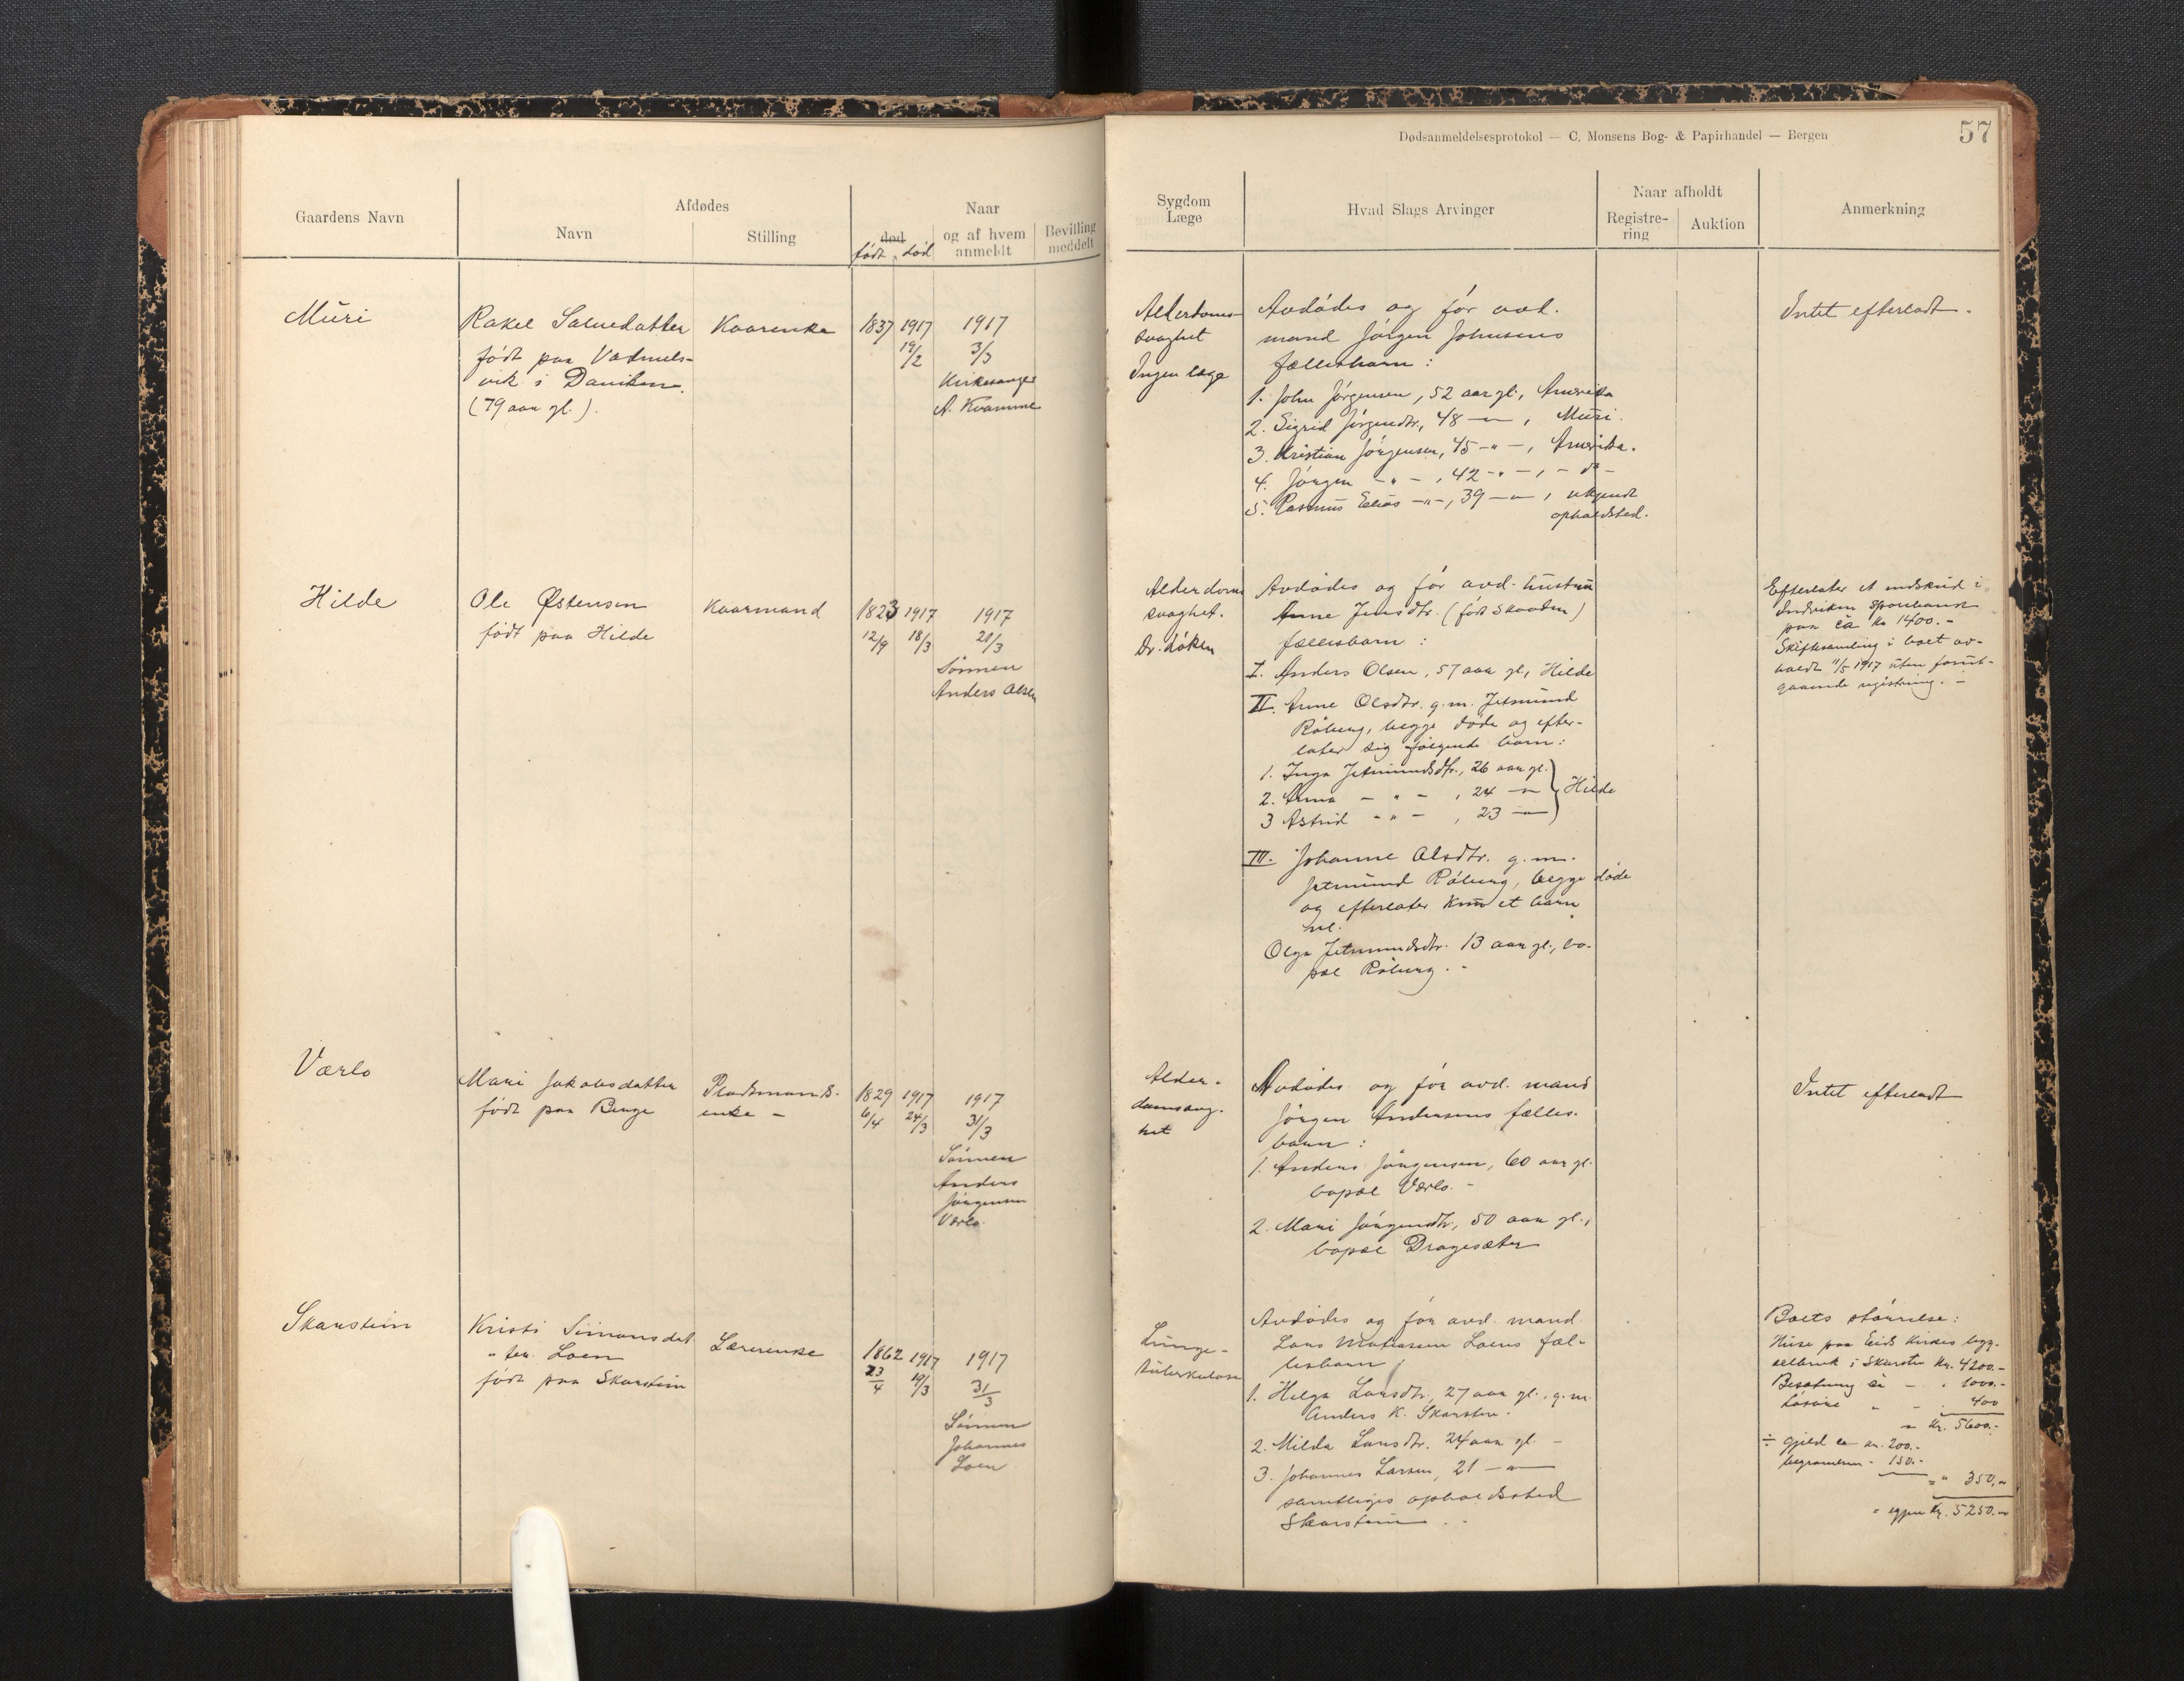 Dødsanmeldelsesprotokol — C. Monsens Bog- & Papirhandel — Bergen
57
Gaardens Navn
Afdødes
Navn
Stilling
død
født død
Naar
og af hvem
anmeldt
Bevilling
meddelt
Sygdom
Læge
Hvad Slags Arvinger
Naar afholdt
Registre-
ring
Auktion
Anmerkning
Muri
Rakel Salmedatter
født paa Vadmels-
vik i Daviken
(79 aar gl.).
Kaarenke
1837 1917
19/2
1917
3/3
Kirkesanger
A. Kvamme
Alderdoms-
svaghet
Ingen læge
Avdødes og før avd.
mand Jørgen Johnsens
fællesbarn:
1. John Jørgensen, 52 aar gl., Amerika
2. Sigrid Jørgensdtr., 48 —"—, Muri.
3. Kristian Jørgensen, 45 -"-, Amerika.
4. Jørgen -"-, 42 -"-, - do -
5. Rasmus Elias -"-, 39 —"—, ukjendt
opholdsted.
Intet efterladt.
Hilde
Ole Østensen
født paa Hilde
Kaarmand
1823 1917
12/9 18/3
1917
21/3
Sønnen
Anders Olsen
Alderdoms
svaghet.
Dr. Løken
Avdødes og før avd. hustru
Anne Jensdtr. (født Skaaden)
fællesbarn:
I. Anders Olsen, 57 aar gl., Hilde
II. Anne Olsdtr. g.m. Jetmund
Råheng, begge døde og efter-
later sig følgende barn:
1. Inga Jetmundsdtr., 26 aar gl.
2. Anna - " - , 24 —"— Hilde
3 Astrid - " - , 23 —"—
III. Johanne Olsdtr. g.m.
Jetmund Råheng, begge døde
og efterlater kun et barn
nl.
Olga Jetmundsdtr. 13 aar gl., bo-
pæl Råheng.
Efterlater et indskud i
Indviken Sparebank
paa ca kr 1400.-
Skiftesamling i boet av-
holdt 11/5 1917 uten forut-
gaaende registrering. -
Værlo
Mari Jakobsdatter
født paa Berge
Pladsmands-
enke -
1829 1917
6/4 24/3
1917
31/3
Sønnen
Anders
Jørgensen
Værlo.
Alder-
domsvag-
het
Avdødes og før avd. mand
Jørgen Andersens fælles-
barn:
1. Anders Jørgensen, 60 aar gl.
bopæl Værlo. -
2. Mari Jørgensdtr., 50 aar gl.,
bopæl Dragesæter
Intet efterladt
Skarstein
Kristi Simonsdat
"ter Loen
født paa Skarstein
Lærerenke
1862 1917
23/4 19/3
1917
31/3
Sønnen
Johannes
Loen
Lunge-
tuberkulose
Avdødes og før avd. mand
Lars Matiassen Loens fæl-
lesbarn
1. Helga Larsdtr., 27 aar gl., g.m.
Anders K. Skarstein.
2. Milda Larsdtr. 24 aar gl. -
3. Johannes Larsen, 21 —"—
samtliges opholdssted
Skarstein.
Boets størrelse:
Huse paa Eids kirkes byg-
selbruk i Skarstein kr. 4200.-
Besætning ca - " 1000.-
Løsøre " - " 400
= kr. 5600.-
÷ gjeld ca kr. 200.-
begravelsen - 150.-
= " 350,-
= igjen kr. 5250.-